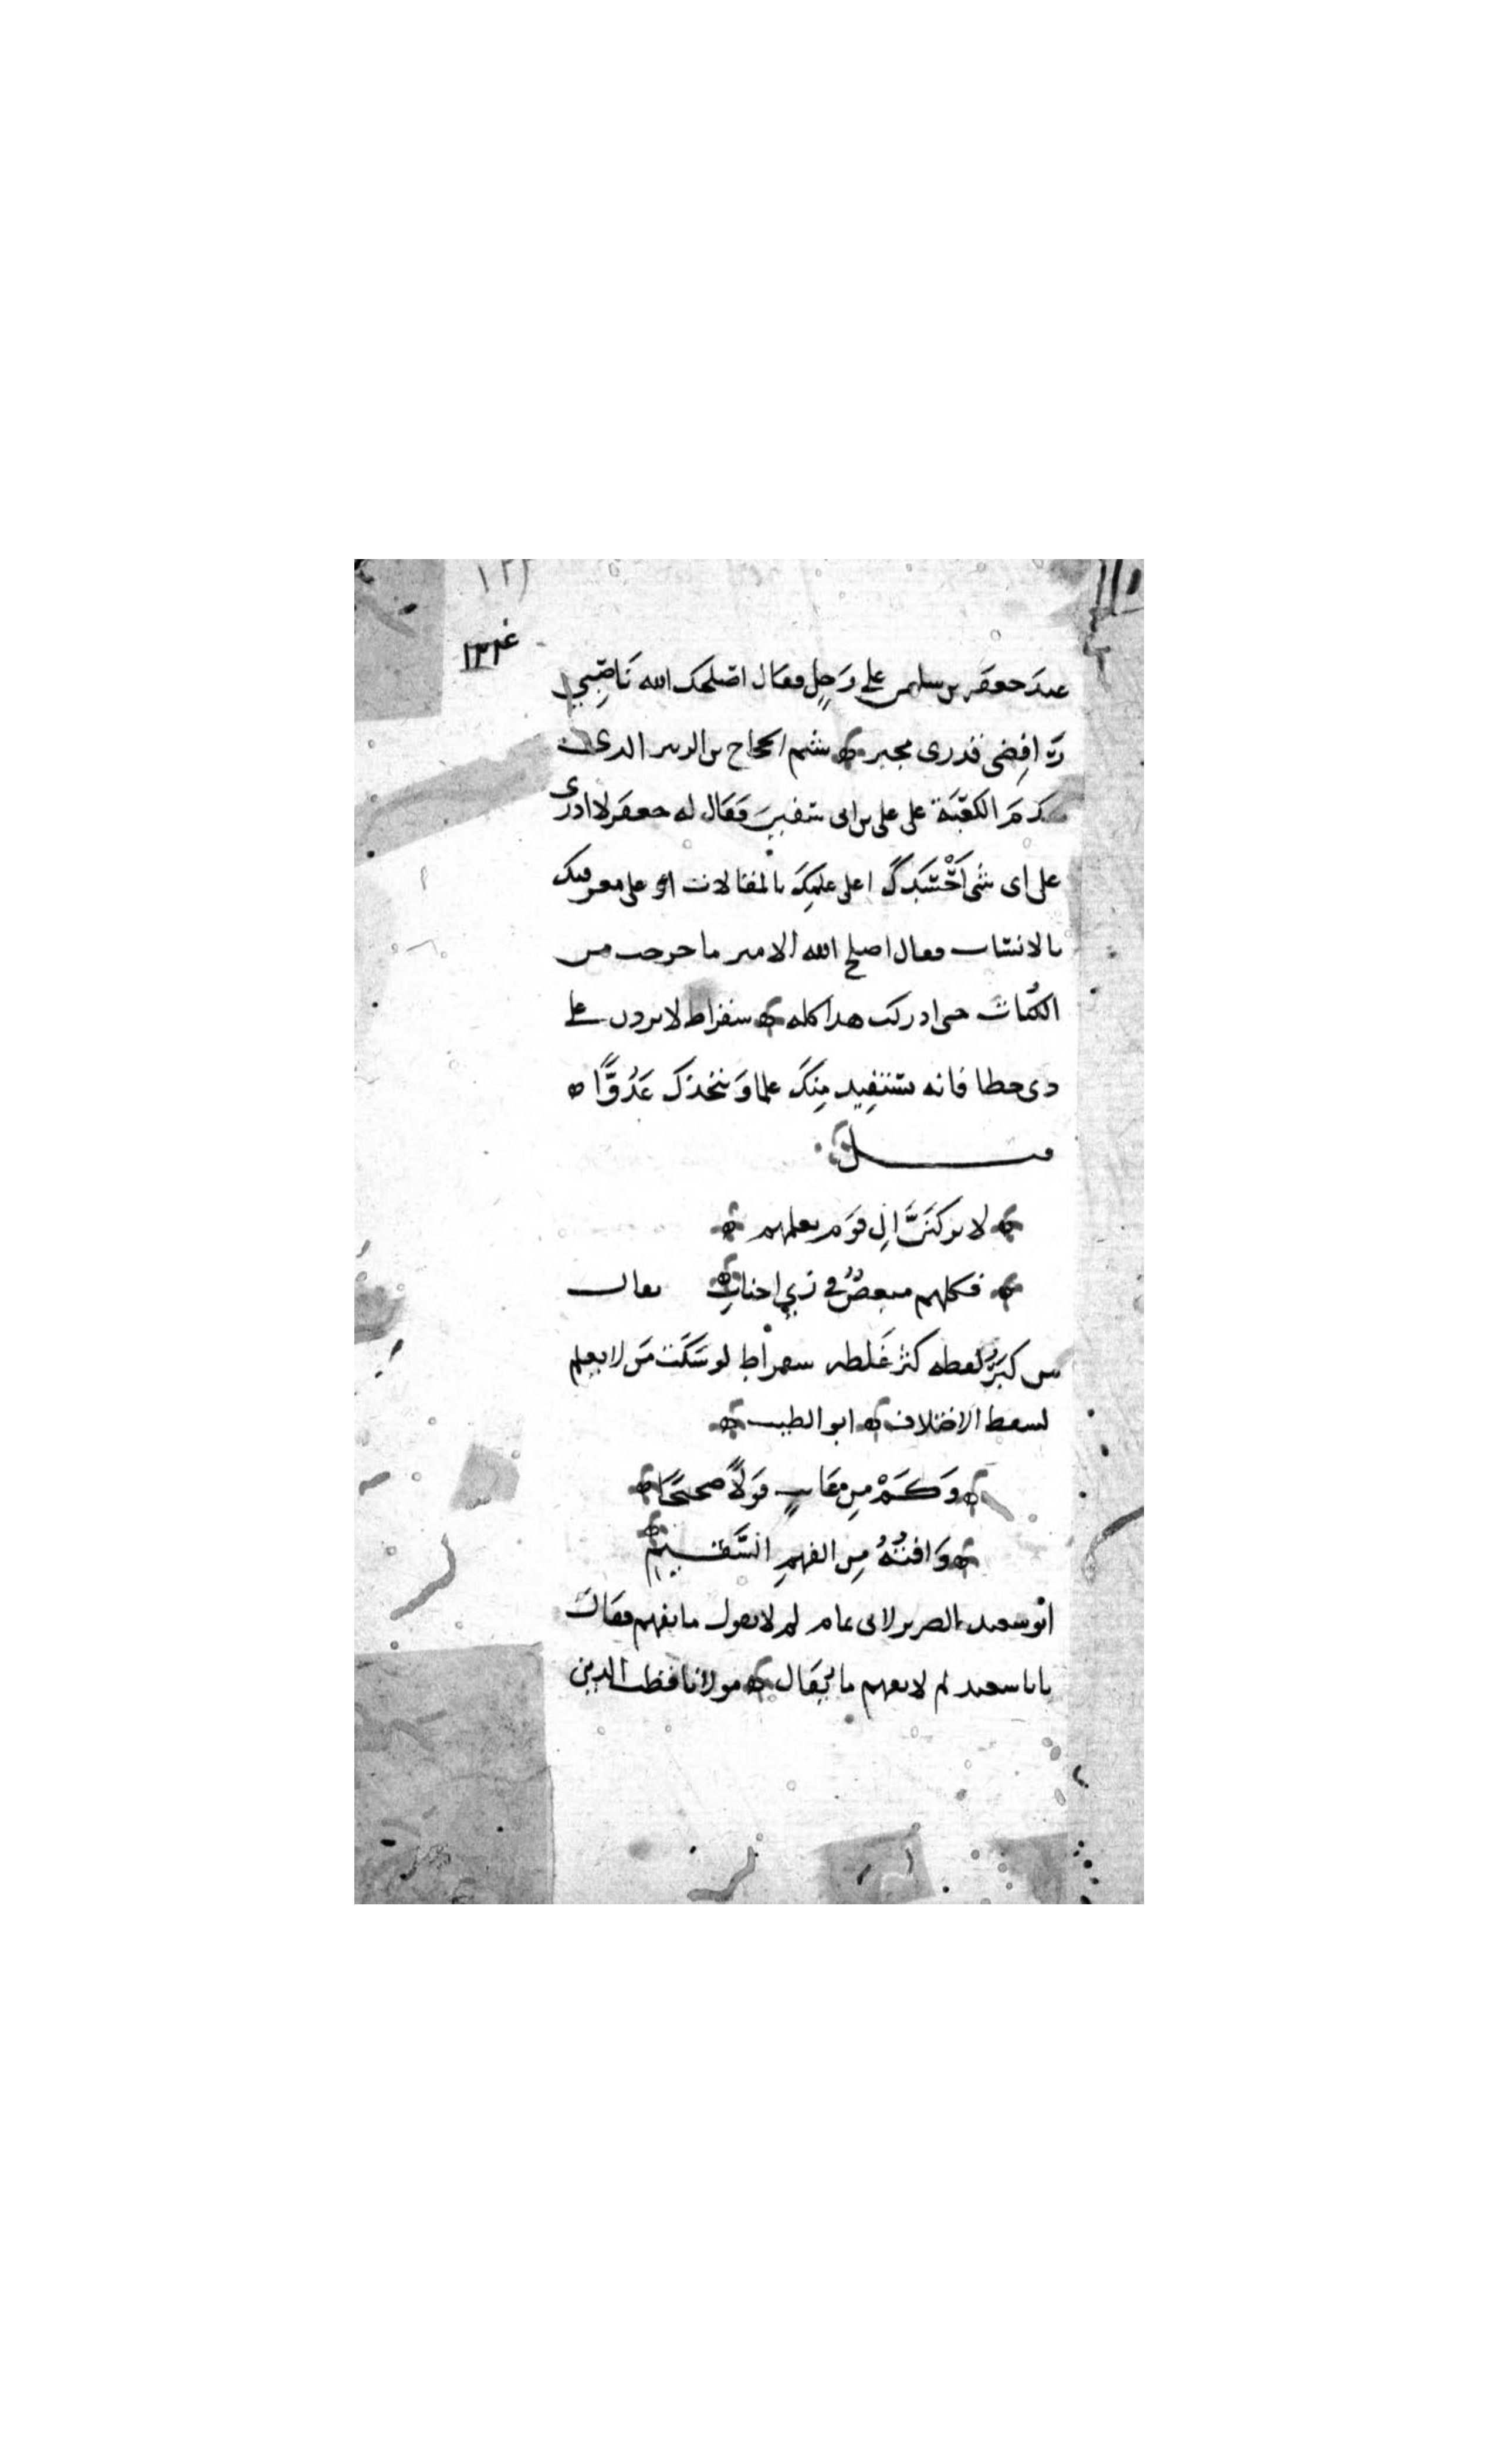 ١٣٤
عند جعفر بن سليمن على رَجلٍ فقال اصلحك الله نَاصِبي
رَافِضى قدرى مجبر شتم الحجاج بن الزبير الذى
هدَمَ الكَعْبَة على على بن ابى سفين فَقال له جعفَر لا ادرى
على اى شى اَحْسُدُكَ اعلى عِلمِكَ بالمقالات او على معرفتك
بالانساب فقال اصلح الله الامير ما خرجت من
الكُتّاب حتى ادركت هذا كله سقراط لا تردن على
ذى خطا فانه يستفيد مِنكَ علما وَيتخذك عَدُوًّا
لا تركنَنَّ الى قوم تعلمهم
فكلهم مبغضٌ فى زي احباب يقال
من كبرَ لفظه كثر غَلطه سقراط لو سَكَت مَن لا يعلم
لسقط الاختلاف ابو الطيب
وَكَمْ مِن عَايبٍ قَولاً صحيحًا
وَافتهُ مِن الفهمِ السَّقيمِ
ابو سعيد الضرير لابى تمام لم لا تقول ما يفهم فقالَ
يابا سعيد لم لا تفهم ما يُقال مولانا قطب الدين